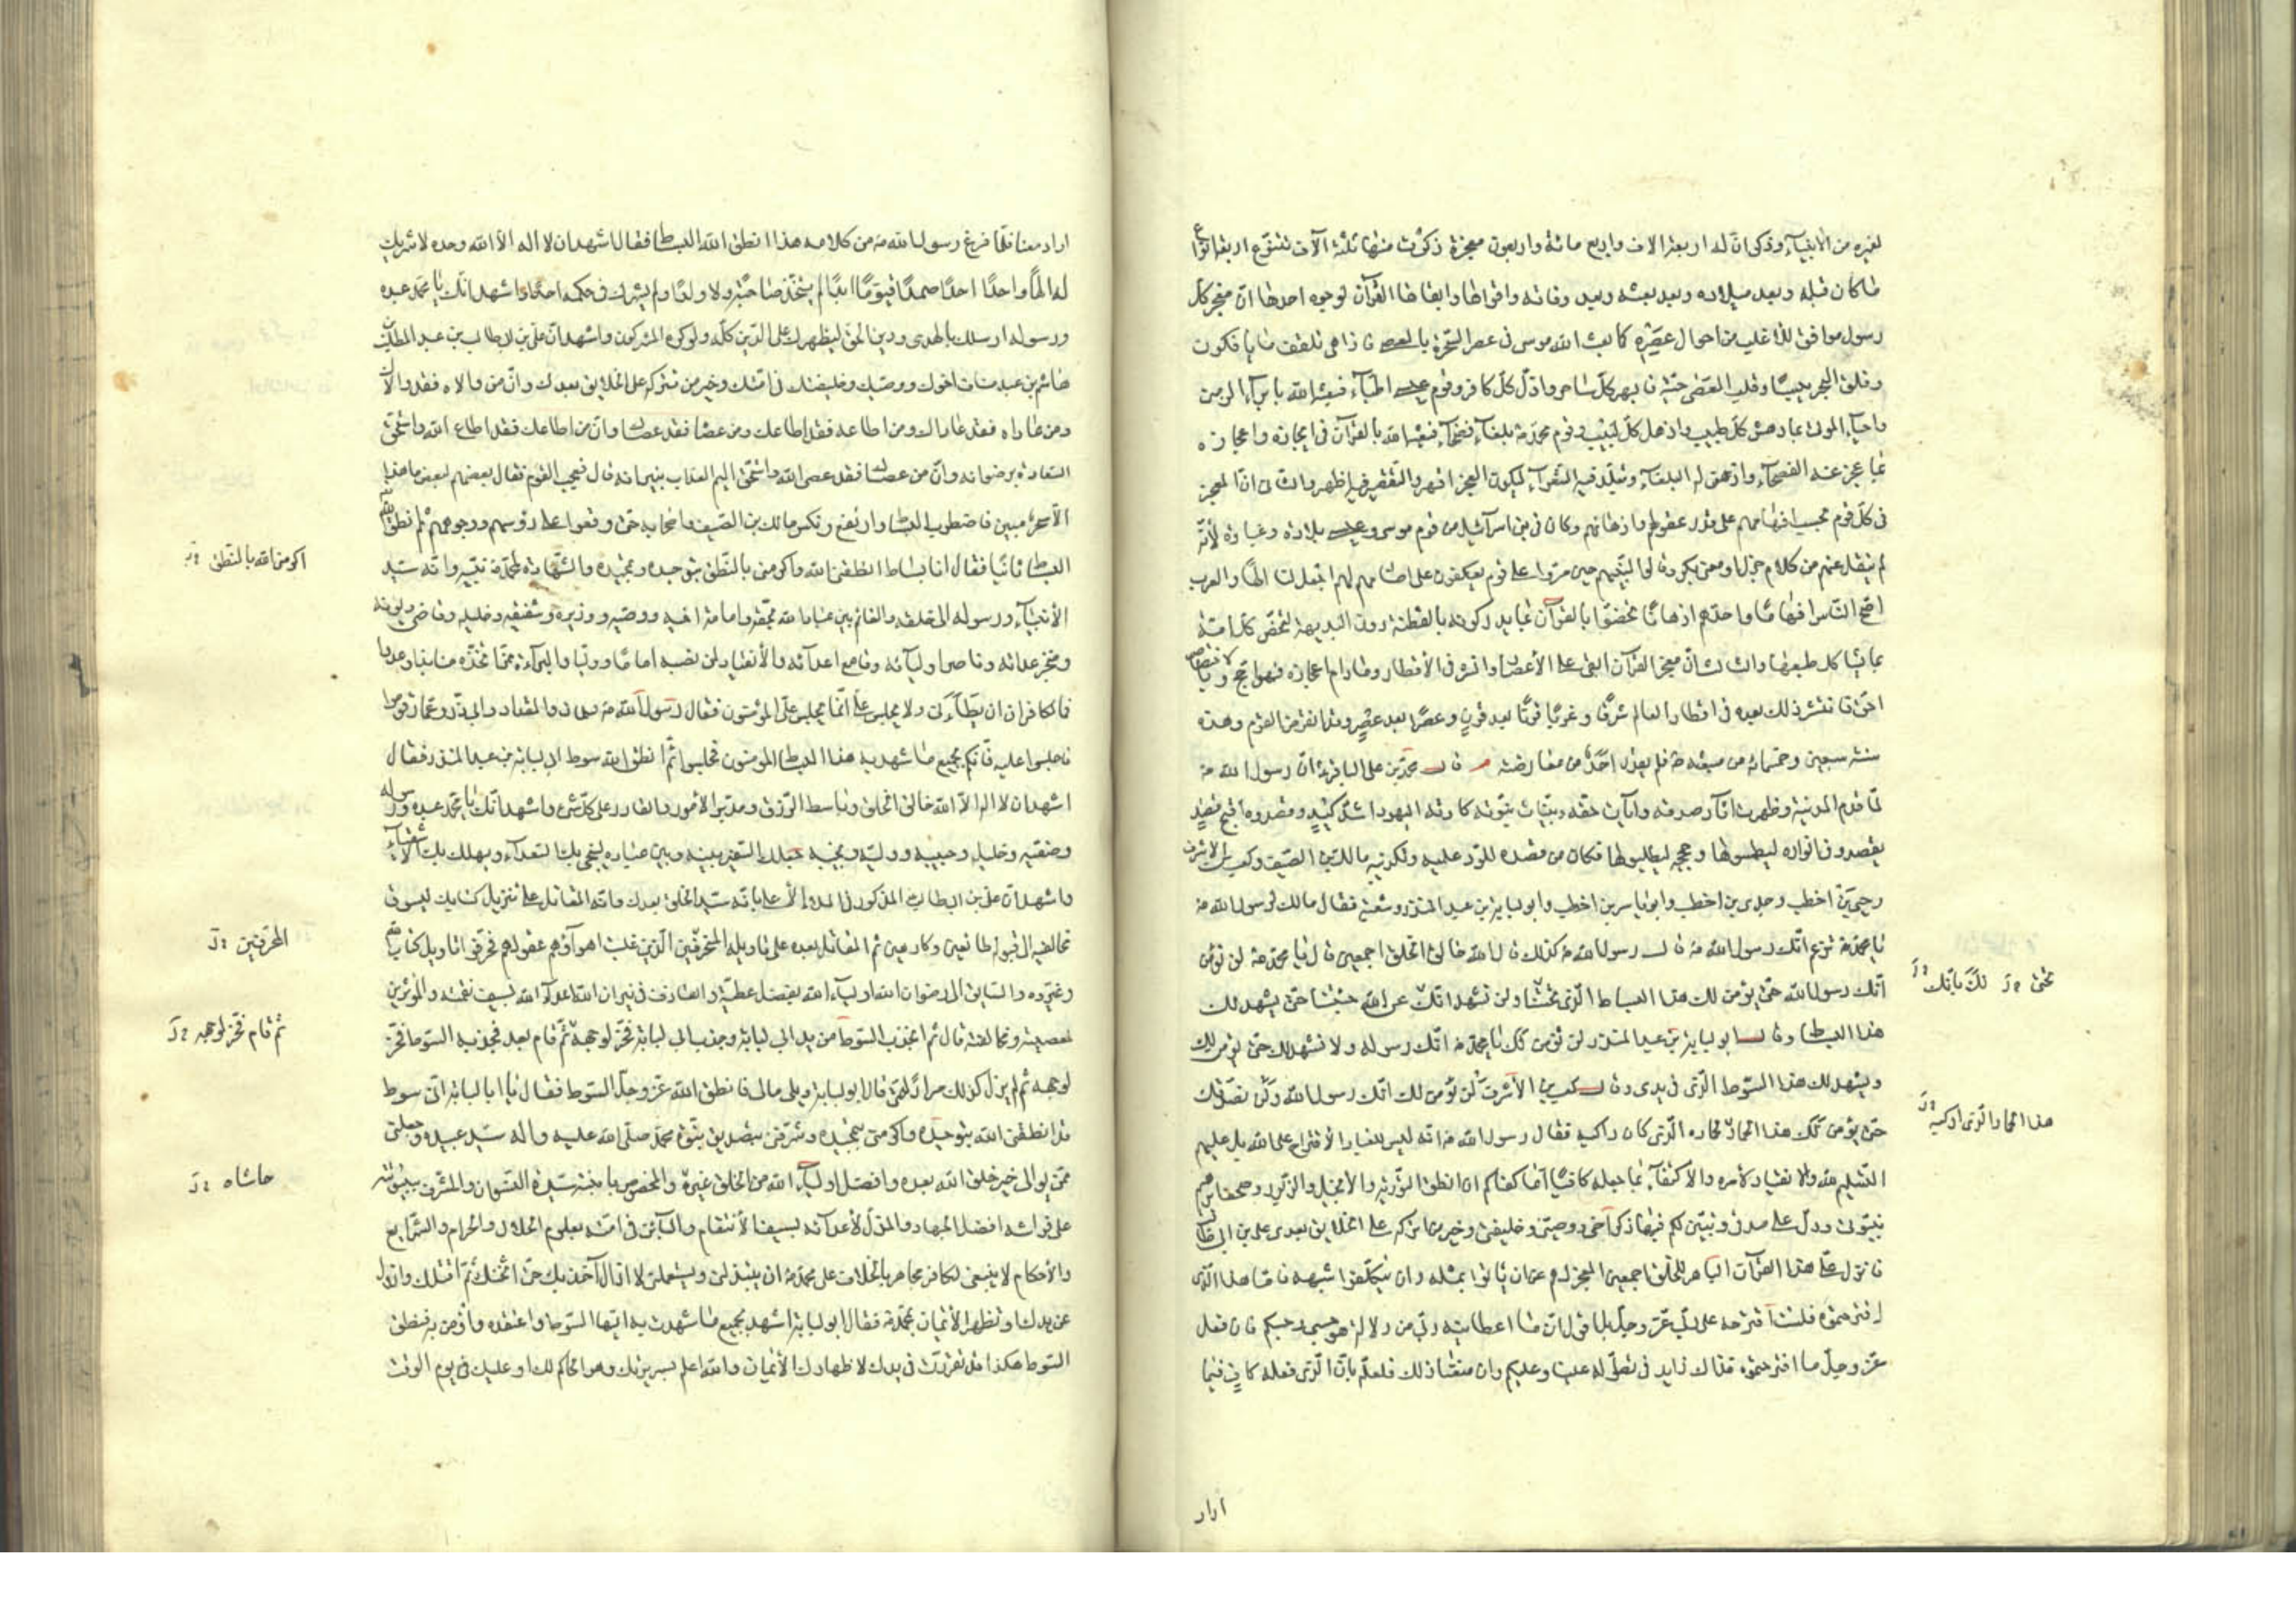 لغيره من الأنبياء وذكر ان له اربعة الاف واربع مائة واربعون معجزة ذكرت منها ثلثة آلاف تتنوع اربعة انواع
ما كان قبله وبعد ميلاده وبعد بعثه وبعد وفاته واقواها وابقاها القرآن لوجوه احدها ان معجز كل
رسول موافق للاغلب من احوال عصره كما بعث الله موسى في عصر السحرة بالعصا فاذا هي تلقف ما يأفكون
وفلق البحر يبسا وقلب العصى حية فابهر كل ساحر واذل كل كافر وقوم عيسى اطباء فبعثه الله بابراء الزمن
واحياء الموتى بما دهش كل طبيب واذهل كل لبيب وقوم محمد ص بلغاء فصحاء فبعثه الله بالقرآن في ايجازه واعجازه
بما عجز عنه الفصحاء واذعن له البلغاء وتبلد فيه الشعراء ليكون العجز اقهر والتقصير فيه اظهر والثاني ان المعجز
في كل قوم بحسب افهامهم على قدر عقولهم واذهانهم وكان في بني اسرآئيل من قوم موسى وعيسى بلادة وغباوة لأنه
لم ينقل عنهم من كلام جزل او معنى بكر وقالوا لنبيهم حين مروا على قوم يعكفون على اصنام لهم اجعل لنا الها والعرب
اصح الناس افهاما واحدهم اذهانا فخصوا بالقرآن بما يدركونه بالفطنة دون البديهة لتخص كل امة
بما يشاكل طبعها والثالث ان معجز القرآن ابقى على الأعصار وانشر في الأقطار وما دام اعجازه فهو احج وبالاختصاص
احق فانتشر ذلك بعده في اقطار العالم شرقا وغربا قرنا بعد قرن وعصرا بعد عصر وقد انقرض القوم وهذه
سنة سبعين وخمسمائة من مبعثه ص فلم يقدر احد من معارضته م قال محمد بن علي الباقر ع ان رسول الله ص
لما قدم المدينة وظهرت اثار صدقه وآيات حقه وبينات نبوته كادته اليهود اشد كيد وقصدوه اقبح قصد
يقصدون انواره ليطمسوها وحججه ليبطلوها فكان من قصده للرد عليه وتكذيبه مالك بن الصيف وكعب بن الاشرف
وحيي بن اخطب وجدي بن اخطب وابو ياسر بن اخطب وابو لبابة بن عبد المنذر وشعبة فقال مالك لرسول الله ص
يا محمد ص تزعم انك رسول الله ص قال رسول الله ص كذلك قال الله خالق الخلق اجمعين قال يا محمد ص لن نؤمن
انك رسول الله حتى يؤمن لك هذا البساط الذي تحتنا ولن نشهد انك عن الله جئتنا حتى يشهد لك
هذا البساط وقال ابو لبابة بن عبد المنذر لن نؤمن لك يا محمد ص انك رسوله ولا نشهد لك حتى يؤمن لك
ويشهد لك هذا السوط الذي في يدي وقال كعب بن الأشرف لن نؤمن لك انك رسول الله ولن نصدقك
حتى يؤمن لك هذا الحمار لحماره الذي كان راكبه فقال رسول الله ص انه ليس للعباد الاقتراح على الله بل عليهم
التسليم لله والانقياد لأمره والاكتفاء بما جعله كافيا اما كفاكم ان انطق التورية والانجيل والزبور وصحف ابراهيم
بنبوتي ودل على صدقي وتبين لكم فيها ذكر اخي ووصيي وخليفتي وخير من اتركه على الخلايق بعدي علي بن ابي طالب
فانزل علي هذا القرآن الباهر للخلق اجمعين المعجز لهم عن ان يأتوا بمثله وان يتكلفوا شبهه فاما هذا الذي
اقترحتموه فلست اقترحه على ربي عز وجل بل اقول ان ما اعطاني ربي من دلالة هو حسبي وحسبكم فان فعل
عز وجل ما اقترحتموه فذاك زايد في تطوله علينا وعليكم وان منعنا ذلك فلعلمه بان الذي فعله كاف فيما
تحتي لك بانك
هذا الحمار الذي اركبه
اراد
اراد منا فلما فرغ رسول الله ص من كلامه هذا انطق الله البساط فقال اشهد ان لا اله الا الله وحده لا شريك
له الها واحدا احدا صمدا قيوما ابدا لم يتخذ صاحبة ولا ولدا ولم يشرك في حكمه احدا واشهد انك يا محمد عبده
ورسوله ارسلك بالهدى ودين الحق ليظهرك على الدين كله ولو كره المشركون واشهد ان علي بن ابي طالب بن عبد المطلب بن
هاشم بن عبد مناف اخوك ووصيك وخليفتك في امتك وخير من تتركه على الخلايق بعدك وان من والاه فقد والاك
ومن عاداه فقد عاداك ومن اطاعه فقد اطاعك ومن عصاه فقد عصاك وان من اطاعك فقد اطاع الله واستحق
السعادة برضوانه وان من عصاك فقد عصى الله واستحق اليم العذاب بنيرانه قال فعجب القوم فقال بعضهم لبعض ما هذا
الا سحر مبين فاضطرب البساط وارتفع ونكس مالك بن الصيف واصحابه حتى وقعوا على رؤسهم ووجوههم ثم انطق الله
البساط ثانيا فقال انا بساط انطقني الله واكرمني بالنطق بتوحيده وتمجيده والشهادة لمحمد ص نبيه وانه سيد
الأنبياء ورسوله الى خلقه والقائم بين عباد الله بحقه وامامة اخيه ووصيه ووزيره وشقيقه وخليله وقاضي ديونه
ومنجز عداته وناصر اوليآئه وقامع اعدآئه والأنقياد لمن نصبه اماما ووليا والبراءة ممن اتخذه منابذا وعدوا
فما لكافر ان يطأني ولا يجلس علي انما يجلس علي المؤمنون فقال رسول الله ص سلمان والمقداد وابي ذر وعمار قوموا
فاجلسوا عليه فانكم بجميع ما شهد به هذا البساط المؤمنون فجلسوا ثم انطق الله سوط ابي لبابة بن عبد المنذر فقال
اشهد ان لا اله الا الله خالق الخلق وباسط الرزق ومدبر الامور والقادر على كل شئ واشهد انك يا محمد عبده ورسوله
وصفيه وخليله وحبيبه ووليه ونجيه جعلك السفير بينه وبين عباده لينجي بك السعداء ويهلك بك الاشقياء
واشهد ان علي بن ابي طالب المذكور في الملأ الأعلى بانه سيد الخلق بعدك وانه المقاتل على تنزيل كتابك ليسوق
مخالفيه الى قبوله طائعين وكارهين ثم المقاتل بعده على تأويله المنحرفين الذين غلبت اهوآؤهم عقولهم فحرفوا تأويل كتاب الله
وغيروه والسابق الى رضوان الله اولياء الله بفضل عطيته والقاذف في نيران الله اعداء الله بسيف نقمته والمؤثرين
لمعصيته ومخالفته قال ثم انجذب السوط من يد ابي لبابة وجذب ابي لبابة فخر لوجهه ثم قام بعد فجذبه السوط فخر
لوجهه ثم لم يزل كذلك مرارا حتى قال ابو لبابة ويلي مالي فانطق الله عز وجل السوط فقال يا ابا لبابة اني سوط
قد انطقني الله بتوحيده واكرمني بتمجيده وشرفني بتصديق نبوة محمد صلى الله عليه واله سيد عبيده وجعلني
ممن يوالي خير خلق الله بعده وافضل اولياء الله من الخلق غيره والمخصوص بابنته سيدة النسوان والمشرف ببيتوتته
على فراشه افضل الجهاد والمذل لأعدآئه بسيف الأنتقام والبآئن في امته بعلوم الحلال والحرام والشرايع
والأحكام لا ينبغي لكافر مجاهر بالخلاف على محمد ص ان يبتذلني ويستعملني لا ازال اجذبك حتى اثخنك ثم اقتلك وازول
عن يدك او تظهر الأيمان بمحمد ص فقال ابو لبابة اشهد بجميع ما شهدت به ايها السوط واعتقده واؤمن به فنطق
السوط هكذا قد تقررت في يدك لاظهارك الأيمان والله اعلم بسريرتك وهو الحاكم لك او عليك في يوم الوقت
اكرمني الله بالنطق
المحرفين
ثم قام فخر لوجهه
حاشاه